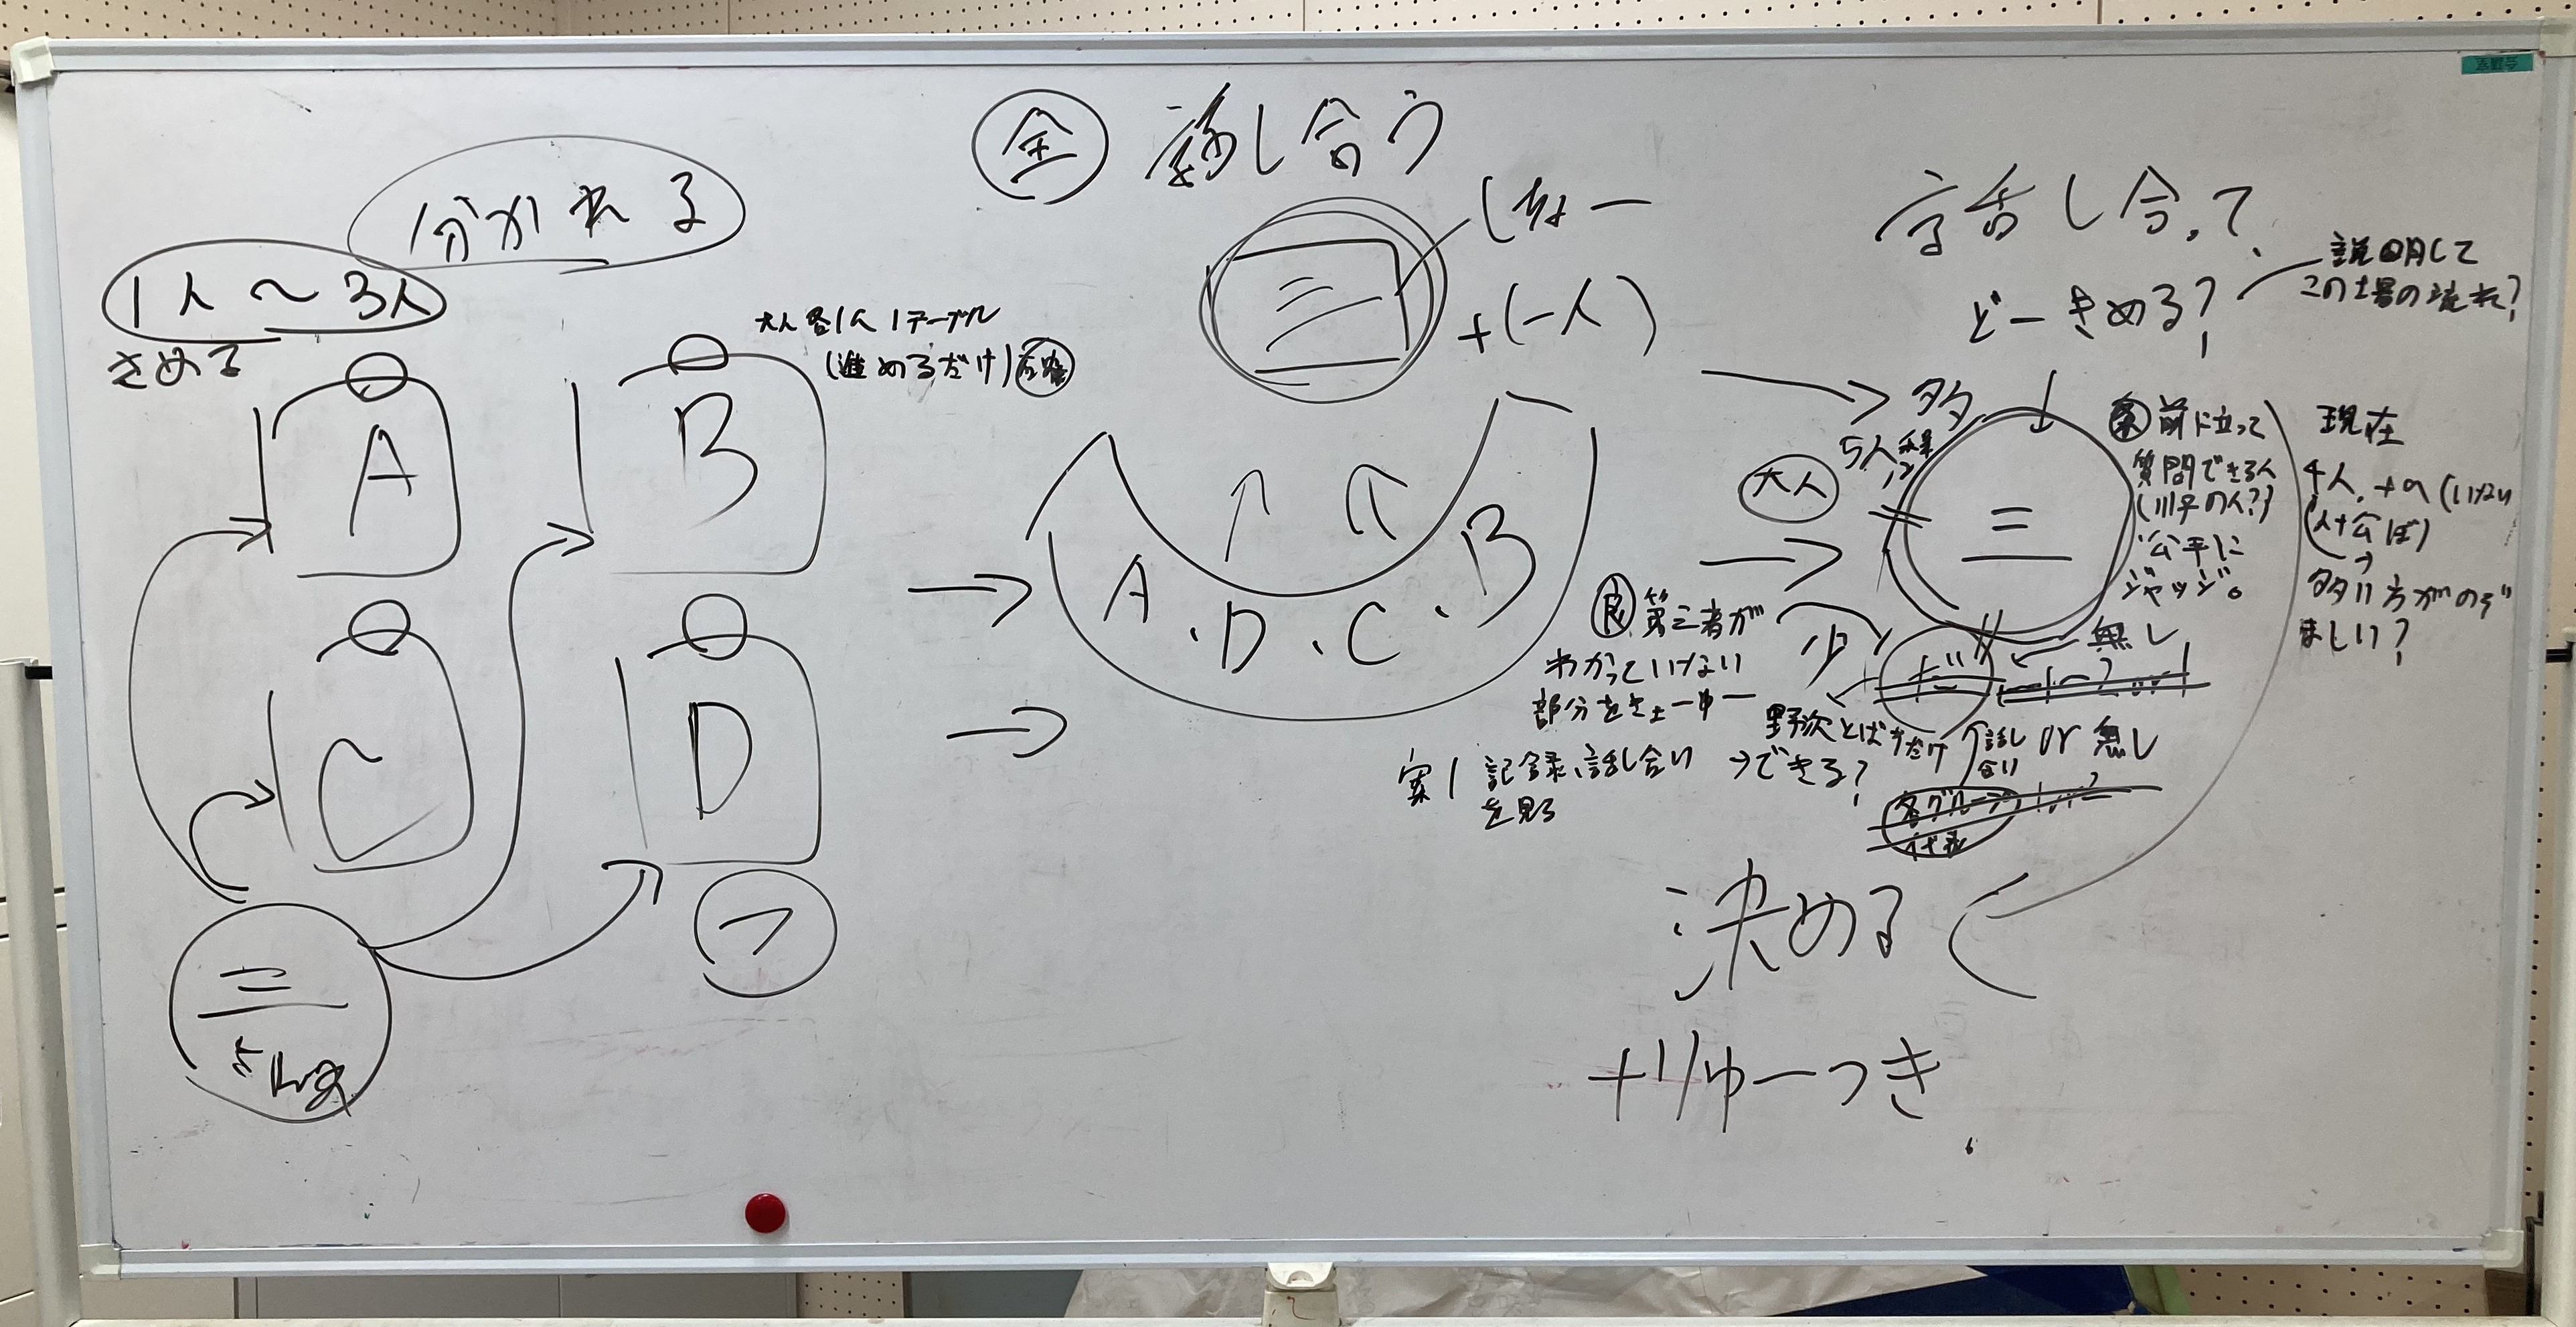 分かれる
1人〜3人
きめる
大人各1人1テーブル
(進めるだけ)
A
B
C
D
三
フ
全 話し合う
三
しちょー
+(一人)
A.D.C.B
話し合って
どーきめる?
説明して
この場の流れ?
多
5人
大人
三
前に立って
質問できる人
公平に
ジャッジ。
現在
4人,+α(いない
人+公ぼ)
多い方がのぞ
ましい?
良 第三者が
わかっていない
部分を
少
無し
野次とばすだけ
話し合い or 無し
案1 記録、話し合い
を見る
→できる?
各グループ
代表
決める
+りゆーつき